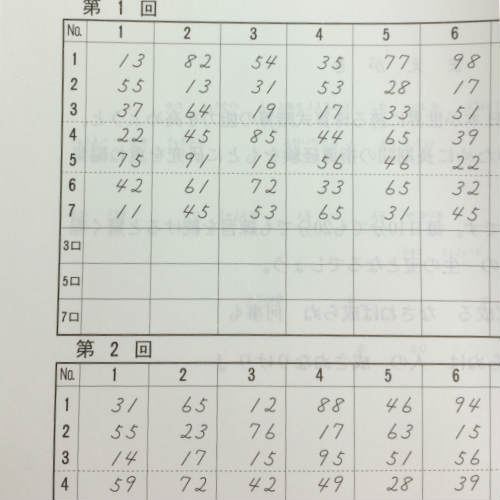 第 1 回
No. 1 2 3 4 5 6
1 13 82 54 35 77 98
2 55 13 31 53 28 17
3 37 64 19 17 33 51
4 22 45 85 44 65 39
5 75 91 16 56 46 22
6 42 61 72 33 65 32
7 11 45 53 65 31 45
3口
5口
7口
第 2 回
No. 1 2 3 4 5 6
1 31 65 12 88 46 94
2 55 23 76 17 63 15
3 14 17 15 95 51 56
4 59 72 42 49 28 39